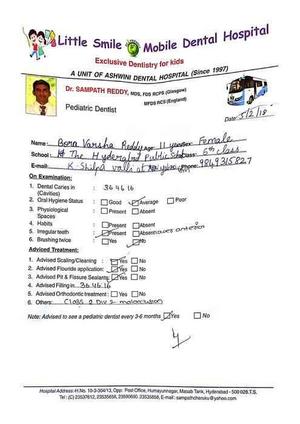 Little Smile Mobile Dental Hospital
Exclusive Dentistry for kids
A UNIT OF ASHWINI DENTAL HOSPITAL (Since 1997)
Dr. SAMPATH REDDY, MDS, FDS RCPS (Glasgow)
MFDS RCS (England)
Pediatric Dentist
Date: 5/2/18
Name: Bona Varsha Reddy age 11 gender: Female
School: The Hyderabad Public School Class: 6th class
E-mail: K. Shilpa valli at Phone: 9849315827
On Examination:
1. Dental Caries in (Cavities) 36 46 16
2. Oral Hygiene Status : Good Average Poor
3. Physiological Spaces : Present Absent
4. Habits : Present Absent
5. Irregular teeth : Present Absent anterior
6. Brushing twice : Yes No
Advised Treatment:
1. Advised Scaling/Cleaning : Yes No
2. Advised Flouride application : Yes No
3. Advised Pit & Fissure Sealants : Yes No
4. Advised Filling in 36 46 16
5. Advised Orthodontic Treatment : Yes No
6. Others: Class 2 Div 2 malocclusion
Note: Advised to see a pediatric dentist every 3-6 months Yes No
Hospital Address: H.No. 10-3-304/13, Opp: Post-Office, Humayunnagar, Masab Tank, Hyderabad - 500 028.T.S.
Tel: (C) 23537612, 23535658, 23595660, 23535858, E-mail: sampathcheruku@yahoo.com